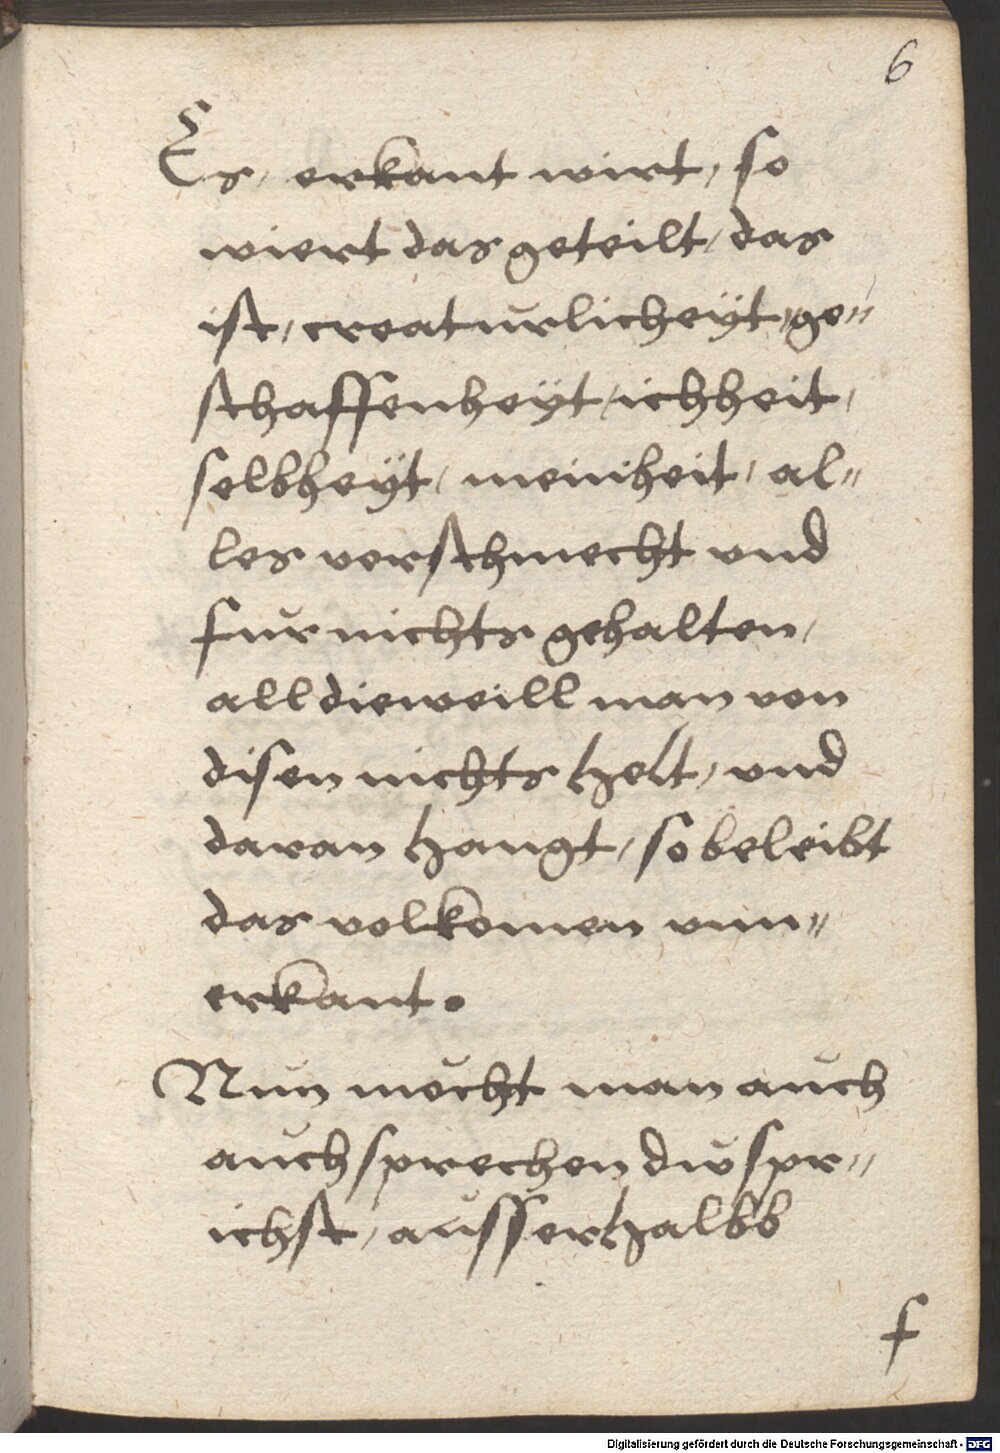 6
Es / erkant wirt / so
wiert das geteilt / das
ist / creaturlicheÿt / ge„
schaffenheÿt / ichheit /
selbheÿt / meinheit / al„
les verschmecht vnd
fur nichts gehalten /
all dieweill man von
disen nichts helt / vnd
daran hangt / so beleibt
das volkomen vnn„
erkant.
Nun mocht man auch
auch sprechen du spr„
ichst / ausserhalbb
f
Digitalisierung gefördert durch die Deutsche Forschungsgemeinschaft - DFG